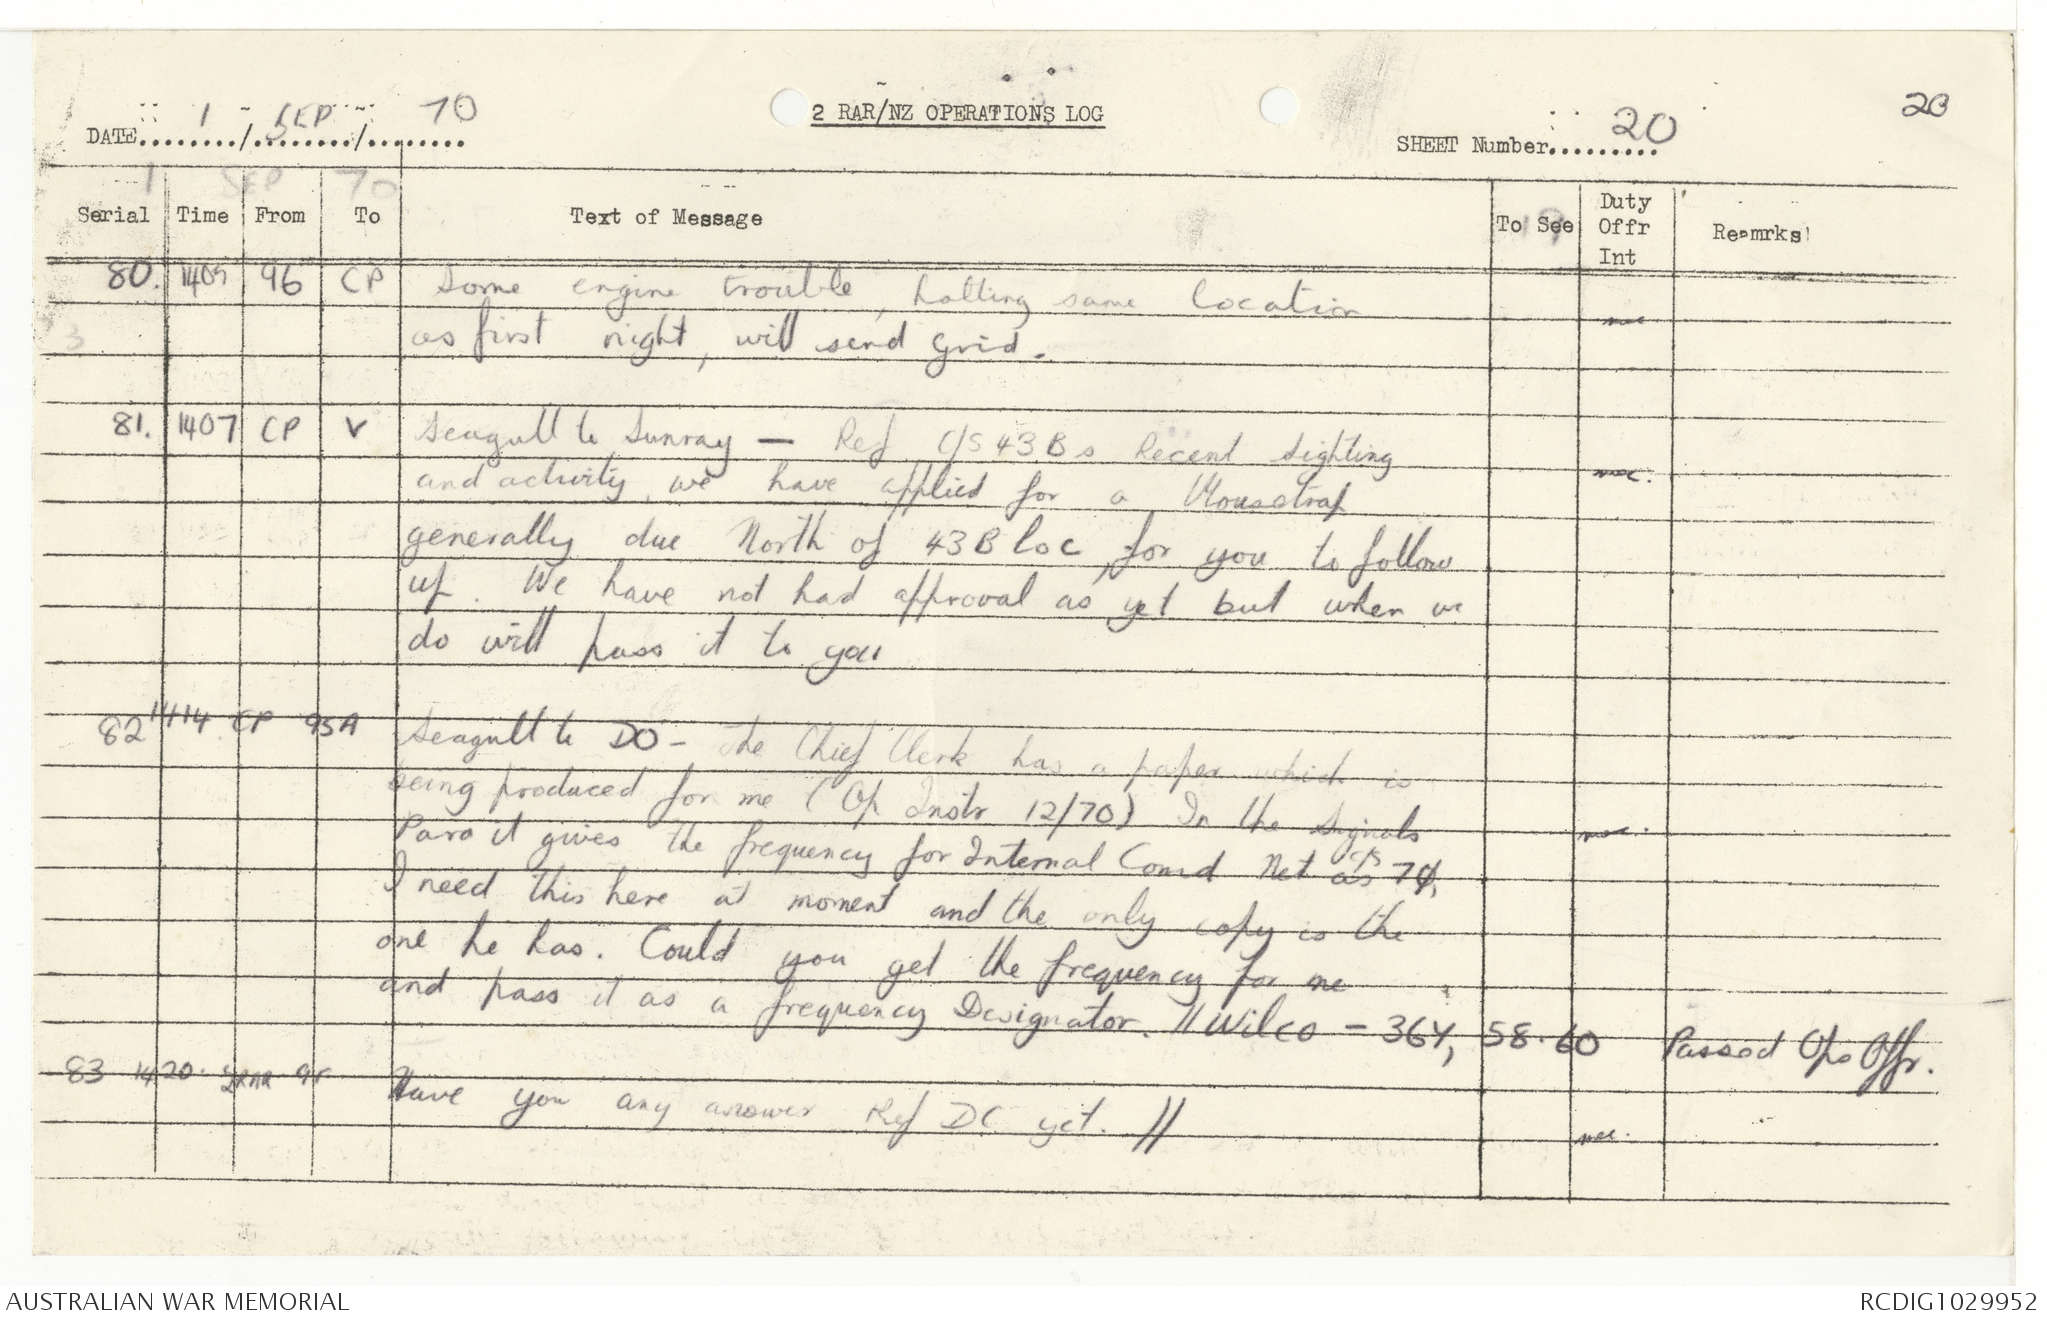 1 SEP 70
2 RAR/NZ OPERATIONS LOG
20
DATE......../......../........
SHEET Number.........
20
1 SEP 70
Serial Time From To Text of Message To See Duty Offr Int Remrks
80. 1405 96 CP Some engine trouble, halting same location
as first night, will send grid.
81. 1407 CP V Seagull to Sunray — Ref C/S 43Bs Recent sighting
and activity, we have applied for a Mousetrap
generally due North of 43B loc, for you to follow
up. We have not had approval as yet but when we
do will pass it to you
82 1414 CP 95A Seagull to DO - The Chief Clerk has a paper which is
being produced for me (Op Instr 12/70) In the Signals
Para it gives the frequency for Internal Comd Net as 70,
I need this here at moment and the only copy is the
one he has. Could you get the frequency for me
and pass it as a frequency Designator. // Wilco - 364, 58.60 Passed Ops Offr.
83 1420. Have you any answer Ref DC yet. //
AUSTRALIAN WAR MEMORIAL
RCDIG1029952